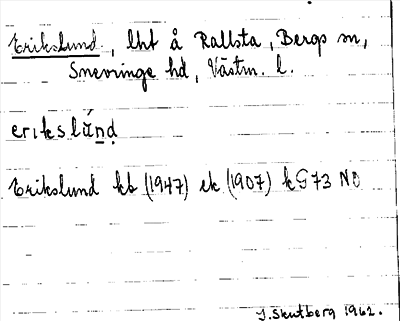 Erikslund, lht å Rallsta, Bergs sn,
Snevringe hd, Västm. l.
erıkslún̲ḍ
Erikslund kb (1947) ek (1907) kG73 NO
J. Skutberg 1962.